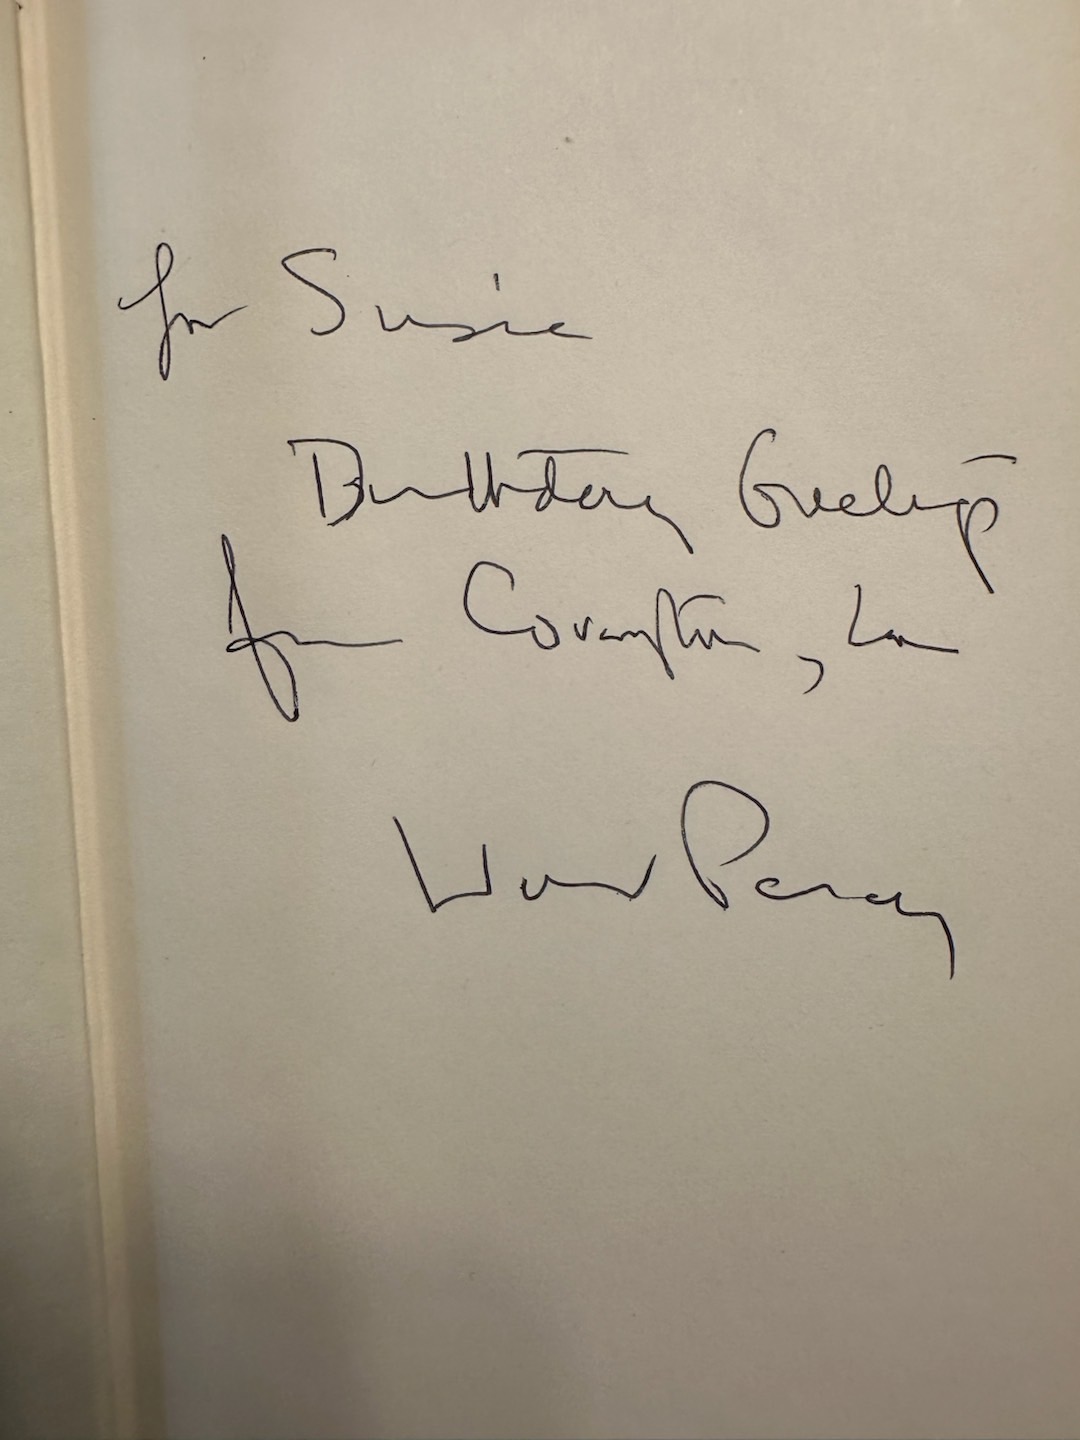 for Susie
Birthday Greetings
from Covington, La
Walker Percy